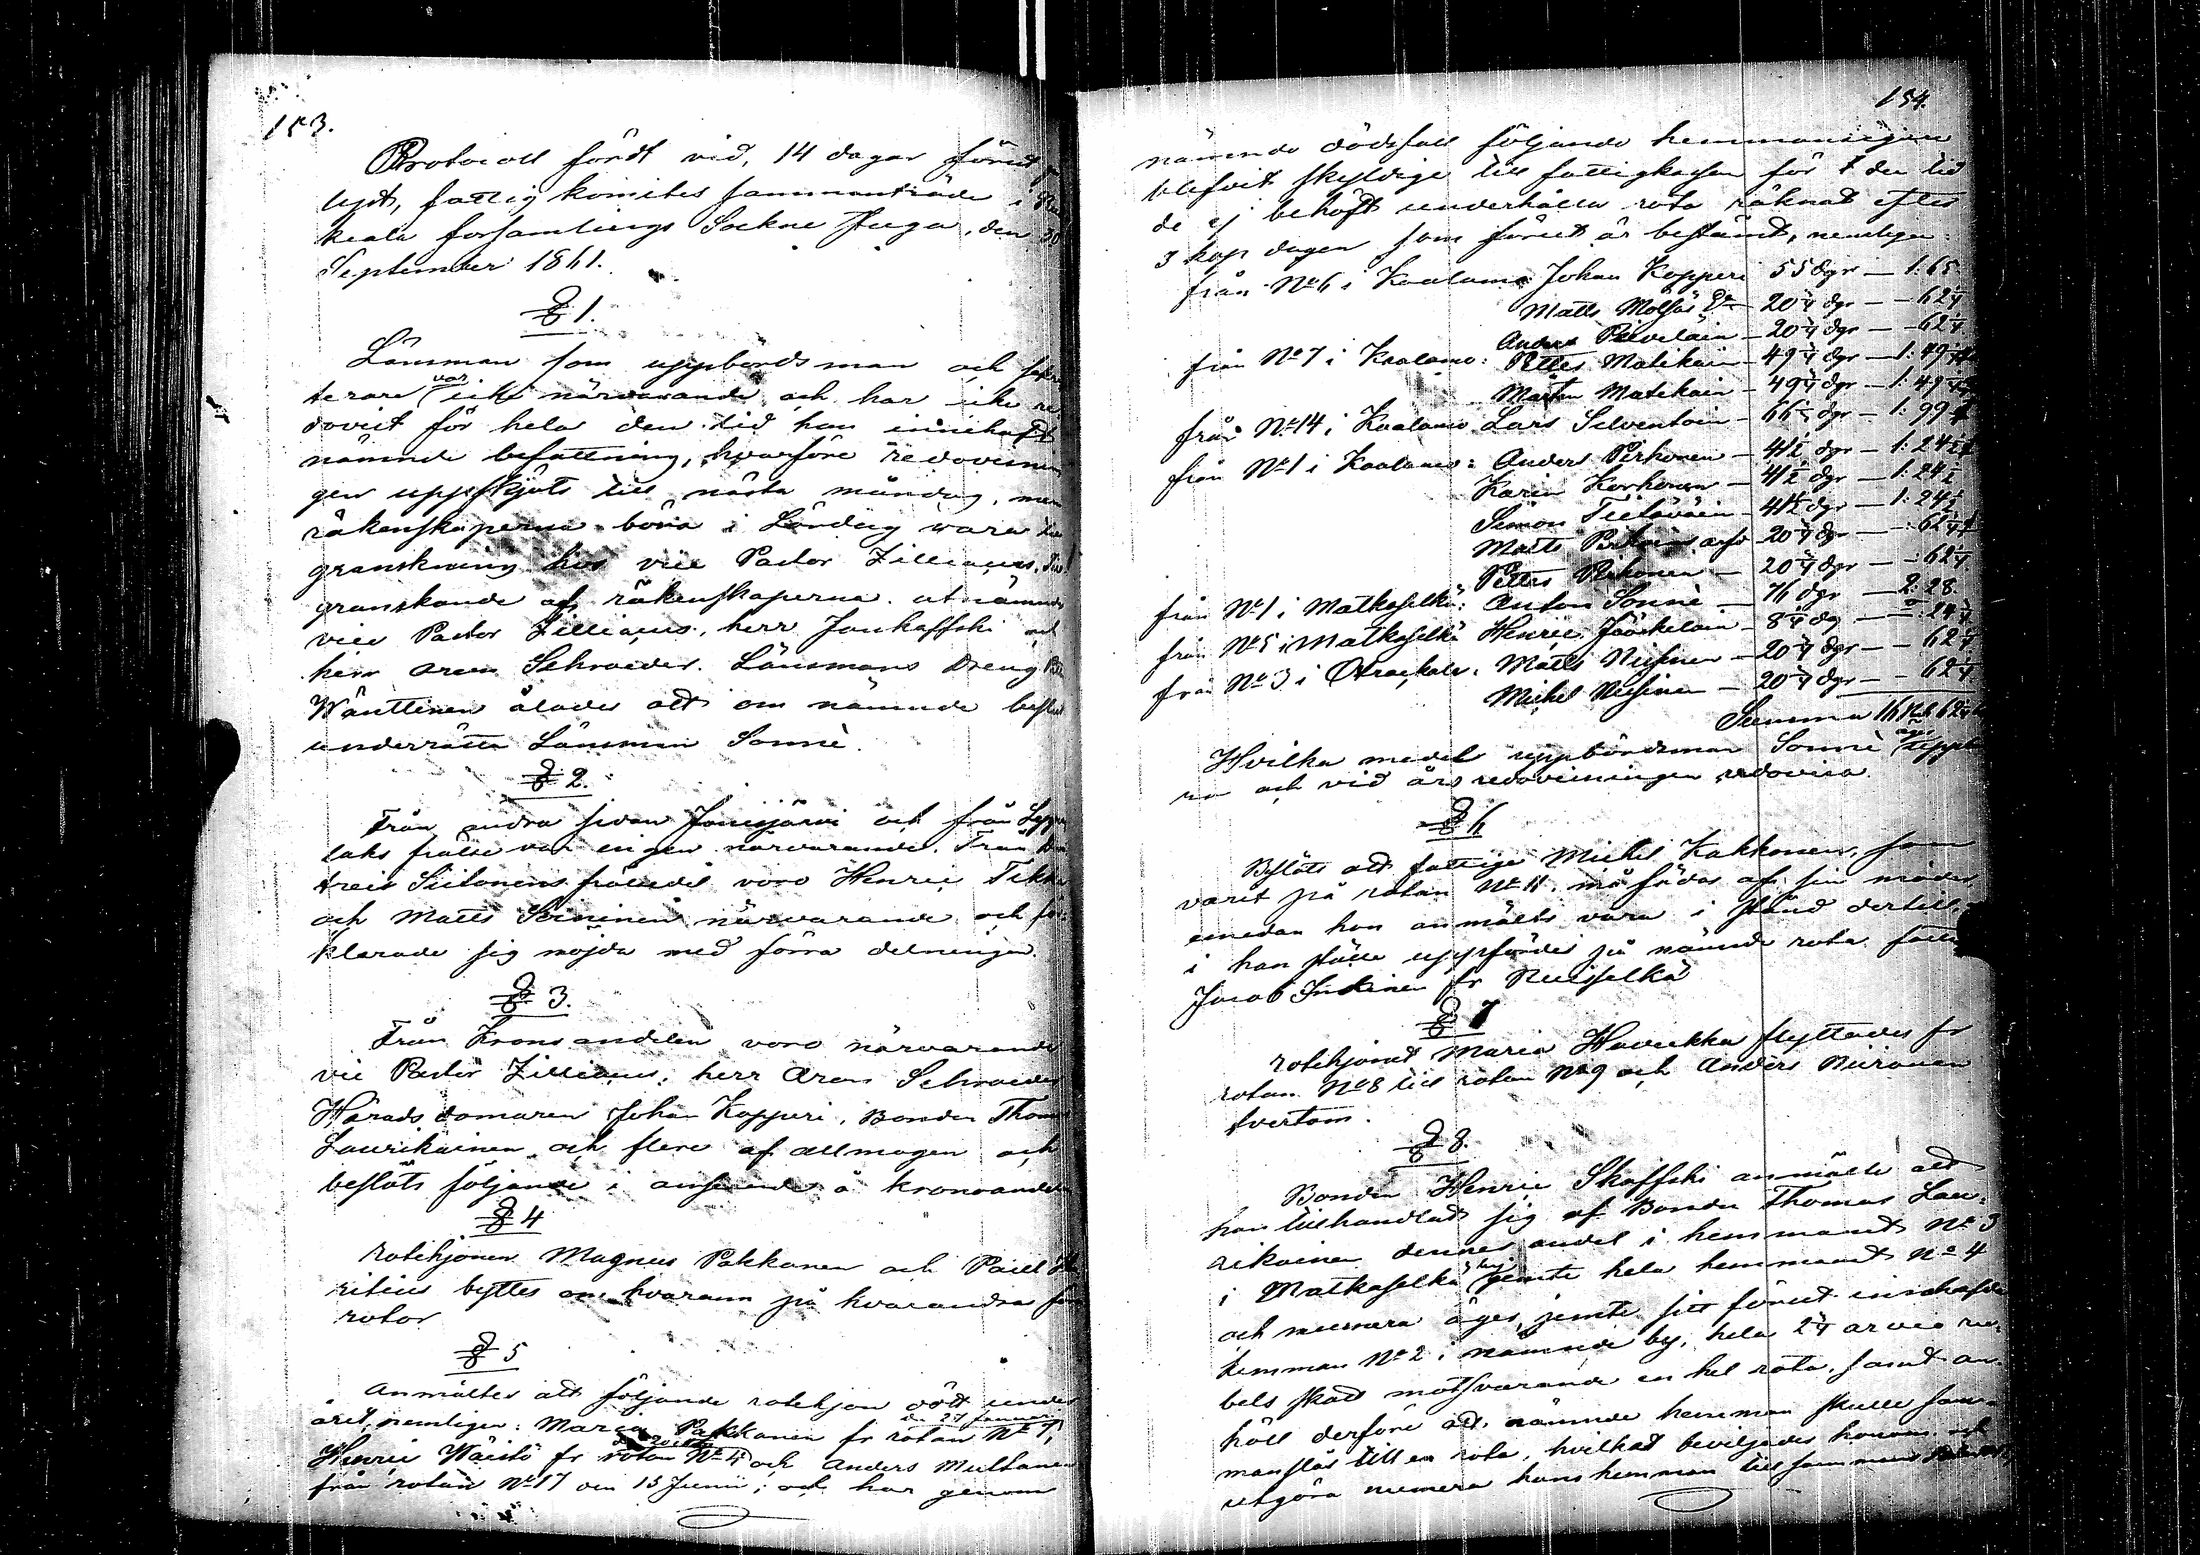 153.
Protocoll fördt vid, 14 dagar förut
lyst, fattig komites sammanträde i
keala församlings Sockne stuga, den 30
September 1861.
§ 1.
Länsman som uppbördsman och sekre
terare var icke närvarande och har icke re
dovist för hela den tid han innehaft
nämnde befattning, hvarföre redovisnin
gen uppskjöts till nästa måndag, men
räkenskaperna böra i Lördag vara
granskning hos vice Pastor Zilliacus. Till
granskande af räkenskaperna utnämndes
vice Pastor Zilliacus, herr Jouhaffski och
herr Aron Schroeder. Länsmans Dreng
Wänttinen ålades att om nämnde beslut
underrätta Länsman Sonnè.
§ 2.
Från andra sidan Jänisjärvi och från Lep
laks frälse var ingen närvarande. Från
treis Siitonens frälsedel voro Henric Tikka
och Matts Soininen närvarande och för
klarade sig nöjda med förra delningen.
§ 3.
Från Kronoandelen voro närvarande
vice Pastor Zilliacus, herr Aron Schroeder
Härads domaren Johan Kopperi, Bonden Thomas
Laurikainen och flere af allmogen och
beslöts följande i anseende å kronoandelen
§ 4
Rotehjonen Magnus Pakkanen och Påhl
ritius byttes om hvarann på hvarandras
rotor
§ 5
Anmältes att följande rotehjon dödt under
året, nemligen: Maria Pakkanen fr rotan Nº 7, den 27 Januari
Henric Wäistö fr rotan Nº 4 och Anders Multanen
från rotan Nº 17 den 13 Junii; och har genom
154.
nämnde dödsfall följande hemmansegare
blifvit skyldige till fattigkassan för den tid
de ej behöft underhålla rota räknat efter
3 kop dagen som förut är bestämt, nemligen:
från Nº 6 i Kaalamo Johan Kopperi 55 dgr — 1:65.
Matts Mölsä 20¾ dgr — 62¼
Anders Päiveläin — 20¾ dgr — 62¼
från Nº 7 i Kaalamo: Petter Matikain — 49¾ dgr — 1:49¼
Martin Matikain — 49¾ dgr — 1:49¼
från Nº 14 i Kaalamo Lars Silventoin — 66½ dgr — 1:99½
från Nº 1 i Kaalamo: Anders Pirhonen — 41½ dgr — 1:24½
Karin Korhonen — 41½ dgr — 1:24½
Simon Tietäväin — 41½ dgr — 1:24½
Matts arfv 20¾ dgr — 62¼
Petter — 20¾ dgr — 62¼
från Nº 1 i Matkaselkä: Anton Sonnè — 76 dgr — 2:28.
från Nº 5 i Matkaselkä Henric Jääskeläin — 8¼ dg — 24¾
från Nº 3 i Matts — 20¾ dgr — 62¼
Michel — 20¾ dgr — 62¼
Summa 16 Rub 62
Hvilka medel uppbördsman Sonnè äger uppbä
ra och vid års redovisningen redovisa.
§ 6
Beslöts att fattige Michel Kakkonen, som
varit på rotan Nº 11 må födas af sin moder,
emedan hon anmälts vara i stånd dertill,
i hans ställe uppfördes på nämnde rota fattige
Jacob fr Ruisselkä
§ 7
Rotehjonet Maria Havukka flyttades fr
rotan Nº 8 till rotan Nº 9 och Anders Piironen
tvertom.
§ 8.
Bonden Henric Skaffski anmälte att
han tillhandlat sig af Bonden Thomas Lau-
rikainen dennes andel i hemmanet Nº 3
i Matkaselkä by jemte hela hemmanet Nº 4
och numera äger, jemte sitt förut innehafda
hemman Nº 2 i nämnde by, hela 2¼ arvio ru-
bels skatt motsvarande en hel rota, samt an-
höll derföre att nämnde hemman skulle sam-
manslås till en rota, hvilket beviljades honom och
utgöra numera hans hemman tillsammans